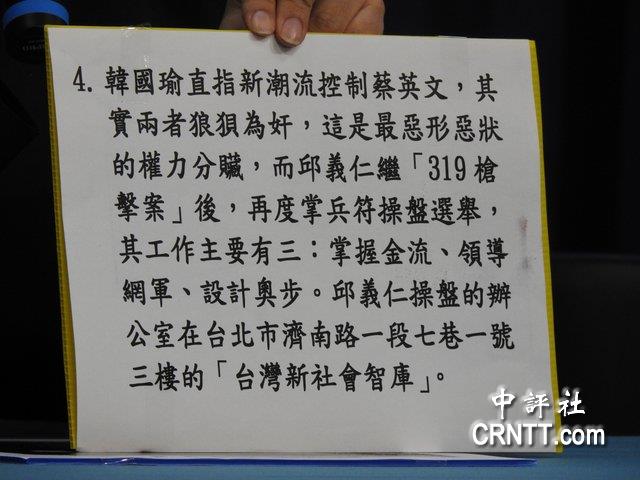 4. 韓國瑜直指新潮流控制蔡英文，其
實兩者狼狽為奸，這是最惡形惡狀
的權力分贓，而邱義仁繼「319槍
擊案」後，再度掌兵符操盤選舉，
其工作主要有三：掌握金流、領導
網軍、設計奧步。邱義仁操盤的辦
公室在台北市濟南路一段七巷一號
三樓的「台灣新社會智庫」。
中評社
CRNTT.com